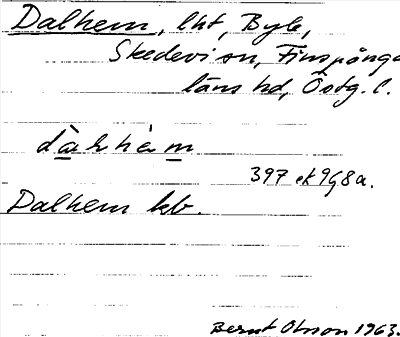 Dalhem, lht, Byle,
Skedevi sn, Finspånga
läns hd, Östg. l.
dàlhèm
397 ek 9g8a.
Dalhem kb.
Bernt Olsson 1963.